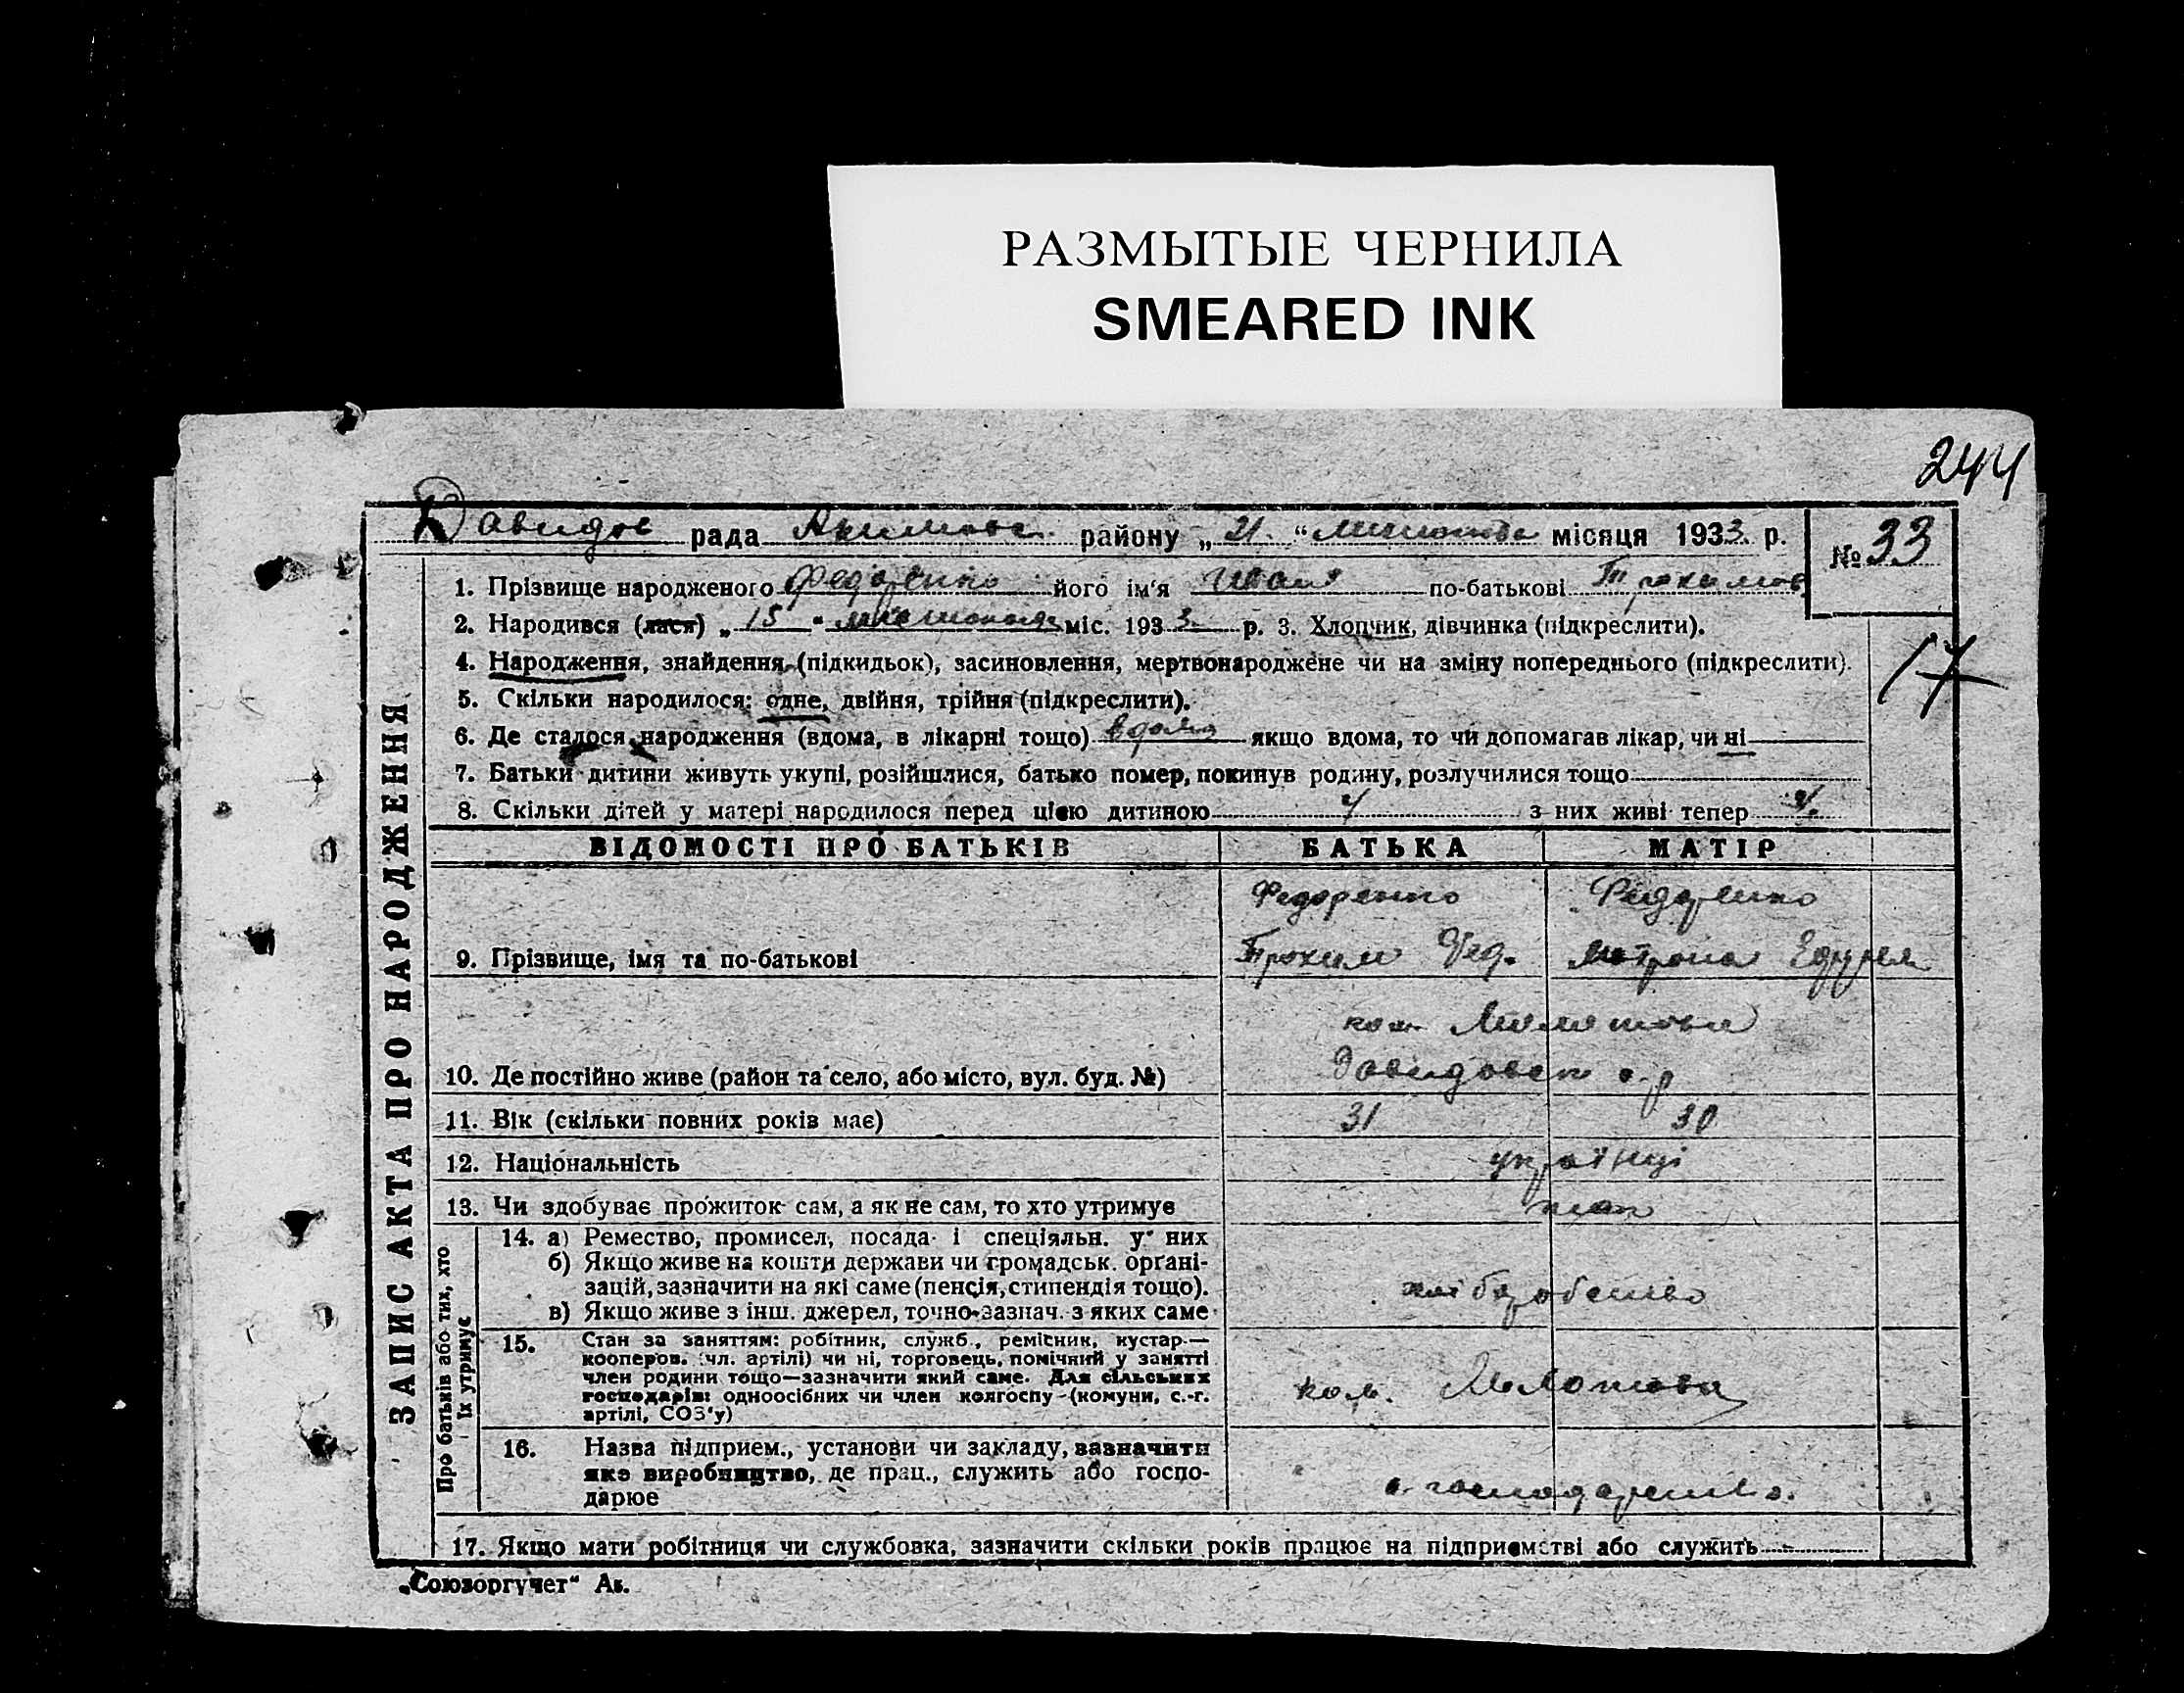 РАЗМЫТЫЕ ЧЕРНИЛА
SMEARED INK
244
Давидов рада Акимовс. району „21.“ листопада місяця 1933 р. № 33
1. Прізвище народженого Федоренко його ім'я Иван по-батькові Трохимов
2. Народився (лася) „15“ листопада міс. 1933. р. 3. Хлопчик, дівчинка (підкреслити).
17
4. Народження, знайдення (підкидьок), засиновлення, мертвонароджене чи на зміну попереднього (підкреслити).
5. Скільки народилося: одне, двійня, трійня (підкреслити).
6. Де сталося народження (вдома, в лікарні тощо) вдома якщо вдома, то чи допомагав лікар, чи ні
7. Батьки дитини живуть укупі, розійшлися, батько помер, покинув родину, розлучилися тощо
8. Скільки дітей у матері народилося перед цією дитиною 4 з них живі тепер
ЗАПИС АКТА ПРО НАРОДЖЕННЯ
ВІДОМОСТІ ПРО БАТЬКІВ БАТЬКА МАТІР
Федоренко Федоренко
9. Прізвище, імя та по-батькові Трохим Фед. Мотрона
ком. Молотова
10. Де постійно живе (район та село, або місто, вул. буд. №) Давидовск с.р
11. Вік (скільки повних років має) 31 30
12. Національність українці
13. Чи здобуває прожиток сам, а як не сам, то хто утримує
Про батьків або тих, хто їх утримує
14. а) Ремество, промисел, посада і спеціяльн. у них
б) Якщо живе на кошти держави чи громадськ. орґані-
зацій, зазначити на які саме (пенсія, стипендія тощо).
хліборобство
в) Якщо живе з інш. джерел, точно зазнач. з яких саме
15. Стан за заняттям: робітник, служб., ремісник, кустар—
кооперов. (чл. артілі) чи ні, торговець, помічний у занятті
член родини тощо—зазначити який саме. Для сільських
господарів: одноосібних чи член колгоспу (комуни, с.-г.
артілі, СОЗ'у)
ком. Молотова
16. Назва підприєм., установи чи закладу, зазначити
яке виробництво, де прац., служить або госпо-
дарює
с. господарство.
17. Якщо мати робітниця чи службовка, зазначити скільки років працює на підприємстві або служить
„Союзоргучет“ Ак.